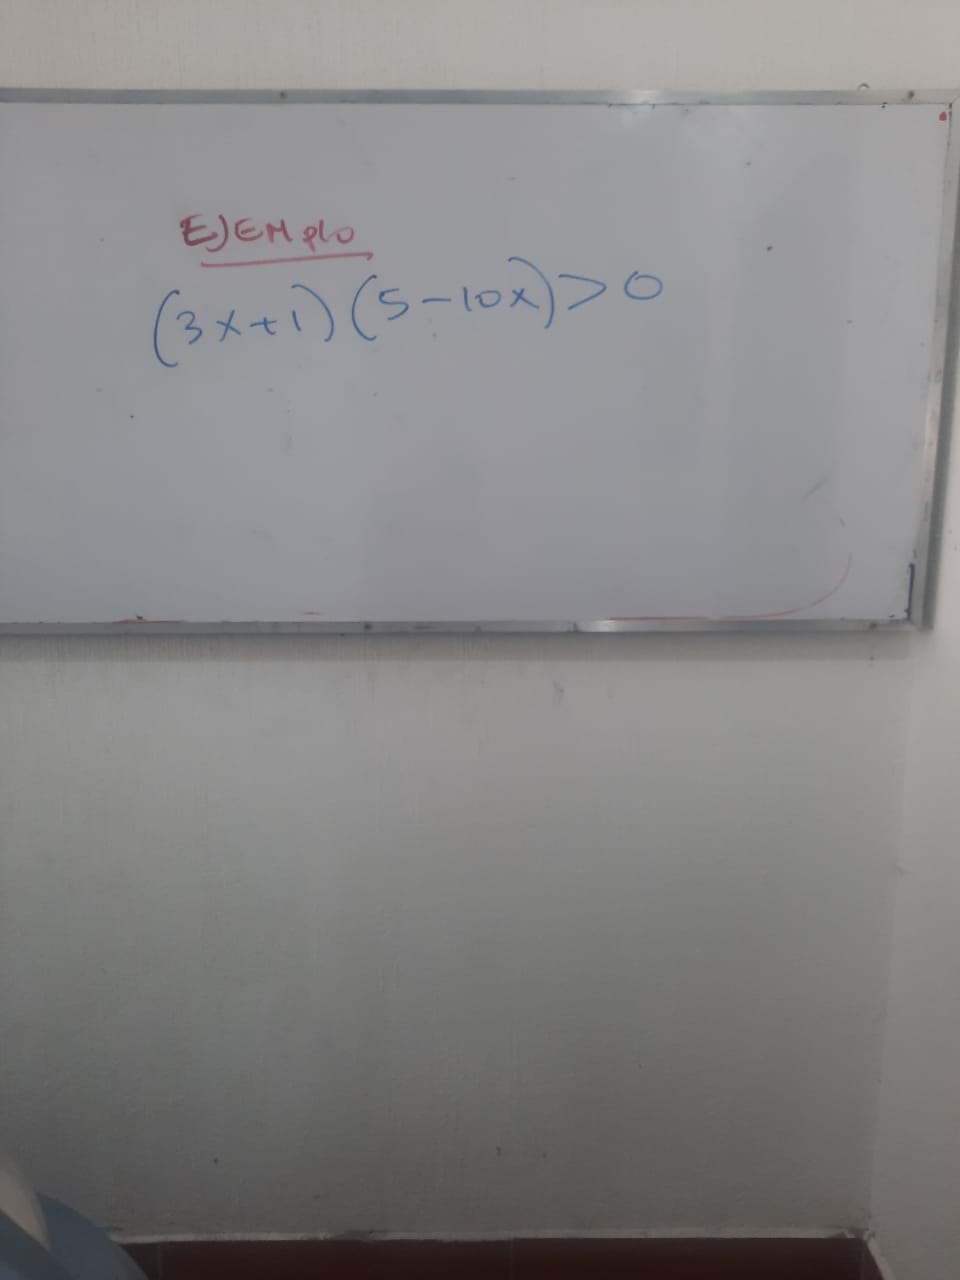 EJEMplo
(3x+1)(5-10x)>0